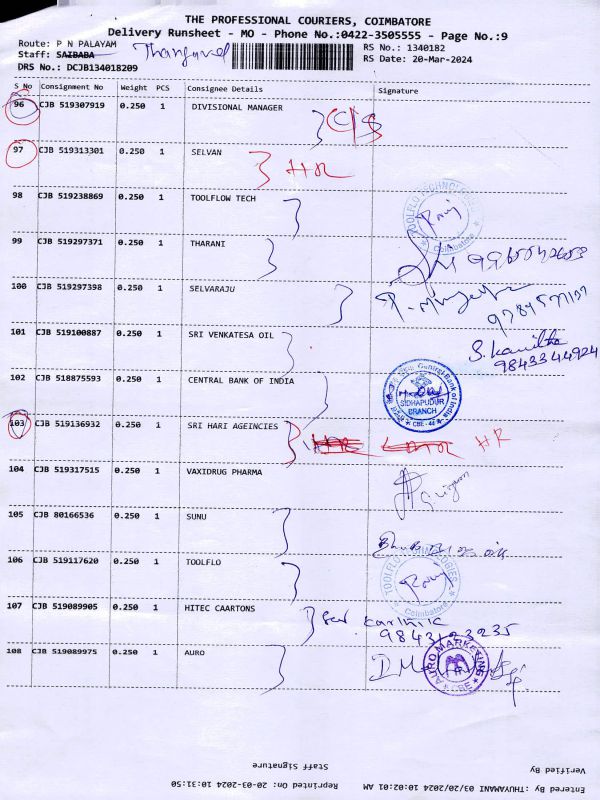 THE PROFESSIONAL COURIERS, COIMBATORE
Delivery Runsheet - MO - Phone No.:0422-3505555 - Page No.:9
Route: P N PALAYAM RS No.: 1340182
Staff: SAIBABA Thangavel RS Date: 20-Mar-2024
DRS No.: DCJB134018209
S No Consignment No Weight PCS Consignee Details Signature
96 CJB 519307919 0.250 1 DIVISIONAL MANAGER
97 CJB 519313301 0.250 1 SELVAN HR
98 CJB 519238869 0.250 1 TOOLFLOW TECH
TOOLFLO TECHNOLOGIES
Coimbatore
99 CJB 519297371 0.250 1 THARANI
100 CJB 519297398 0.250 1 SELVARAJU
101 CJB 519100887 0.250 1 SRI VENKATESA OIL
9843344924
102 CJB 518875593 0.250 1 CENTRAL BANK OF INDIA
Central Bank of India
SIDHAPUDUR
BRANCH
CBE - 44
103 CJB 519136932 0.250 1 SRI HARI AGEINCIES HR
104 CJB 519317515 0.250 1 VAXIDRUG PHARMA
105 CJB 80166536 0.250 1 SUNU
106 CJB 519117620 0.250 1 TOOLFLO
TOOLFLO TECHNOLOGIES
Coimbatore
107 CJB 519089905 0.250 1 HITEC CAARTONS
Karthik
9843123235
108 CJB 519089975 0.250 1 AURO
AURO MARKETING
CBE
Staff Signature
Verified By
Reprinted On: 20-03-2024 10:31:50
Entered By : THUYAMANI 03/20/2024 10:02:01 AM